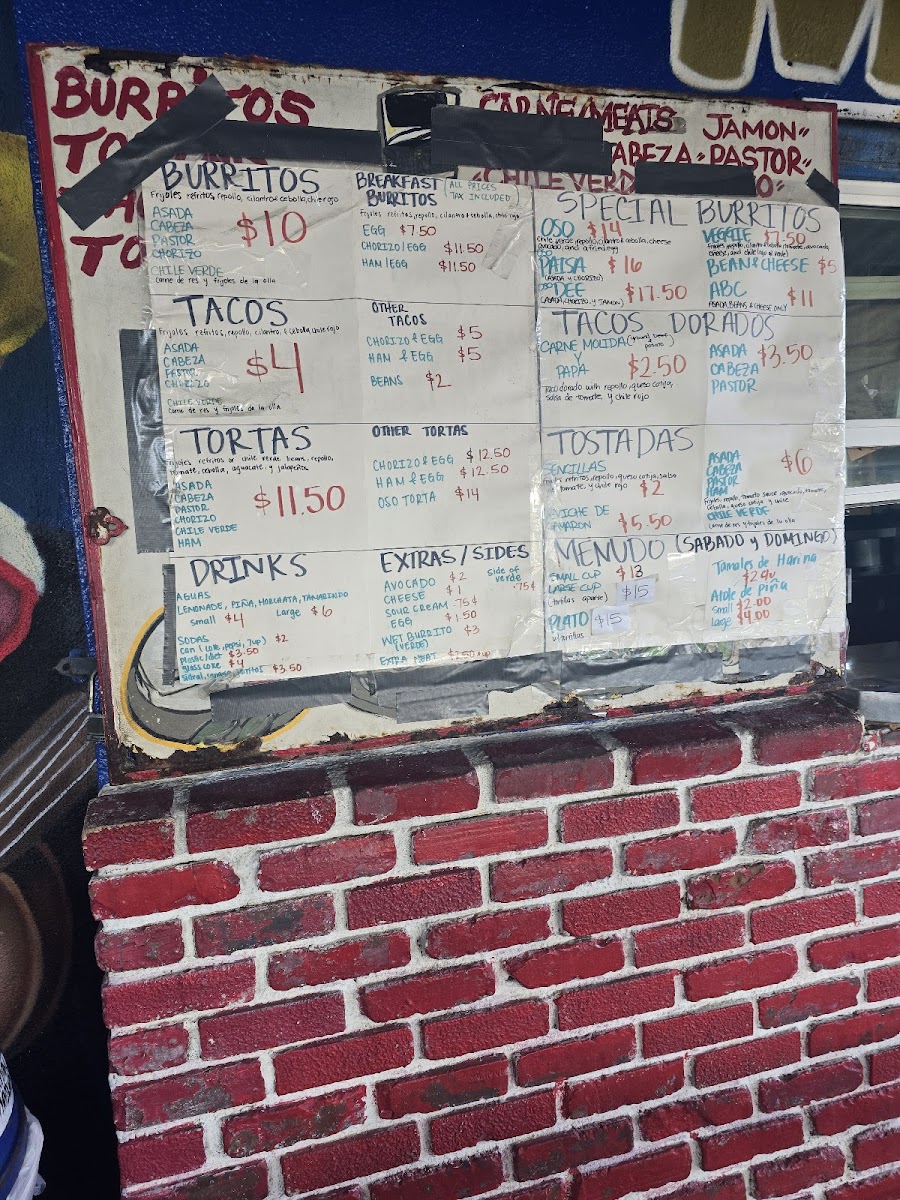 BURRITOS
CARNE/MEATS
JAMON"
CABEZA • PASTOR"
"CHILE VERDE
BURRITOS
Frijoles refritos, repollo, cilantro & cebolla, chile rojo
ASADA
CABEZA
PASTOR
CHORIZO
$10
CHILE VERDE
Carne de res y frijoles de la olla
BREAKFAST
BURRITOS
ALL PRICES
TAX INCLUDED
Frijoles refritos, repollo, cilantro & cebolla, chile rojo
EGG $7.50
CHORIZO/EGG $11.50
HAM/EGG $11.50
SPECIAL BURRITOS
OSO $14
Chile verde, repollo, cilantro & cebolla, cheese
avocado, and a fried egg
PAISA $16
(ASADA y CHORIZO)
DEE $17.50
(ASADA, CHORIZO, Y JAMON)
VEGGIE $7.50
BEAN & CHEESE $5
ABC $11
ASADA, BEANS & CHEESE ONLY
TACOS
Frijoles refritos, repollo, cilantro, & cebolla, chile rojo
ASADA
CABEZA
PASTOR
CHORIZO
$4
CHILE VERDE
Carne de res y frijoles de la olla
OTHER
TACOS
CHORIZO & EGG $5
HAM & EGG $5
BEANS $2
TACOS DORADOS
CARNE MOLIDA
Y
PAPA
$2.50
Taco dorado with repollo, queso cotija,
salsa de tomate, y chile rojo
ASADA
CABEZA
PASTOR
$3.50
TORTAS
Frijoles refritos or chile verde beans, repollo,
tomate, cebolla, aguacate, y jalapeños
ASADA
CABEZA
PASTOR
CHORIZO
CHILE VERDE
HAM
$11.50
OTHER TORTAS
CHORIZO & EGG $12.50
HAM & EGG $12.50
OSO TORTA $14
TOSTADAS
SENCILLAS
Frijoles refritos, repollo, queso cotija, salsa
tomate, y chile rojo
$2
CEVICHE DE
CAMARON $5.50
ASADA
CABEZA
PASTOR
HAM
$6
CHILE VERDE
DRINKS
AGUAS
LEMONADE, PIÑA, HORCHATA, TAMARINDO
Small $4 Large $6
SODAS
can (coke, pepsi, 7up) $2
plastic/diet $3.50
glass coke $4
$3.50
EXTRAS/SIDES
AVOCADO $2
CHEESE $1
SOUR CREAM .75¢
EGG $1.50
WET BURRITO $3
(VERDE)
EXTRA MEAT
Side of
verde .75¢
MENUDO (SABADO y DOMINGO)
SMALL CUP $13
LARGE CUP $15
(tortillas aparte)
PLATO $15
w/tortillas
Tamales de Harina
Atole de piña
Small $2.00
Large $4.00